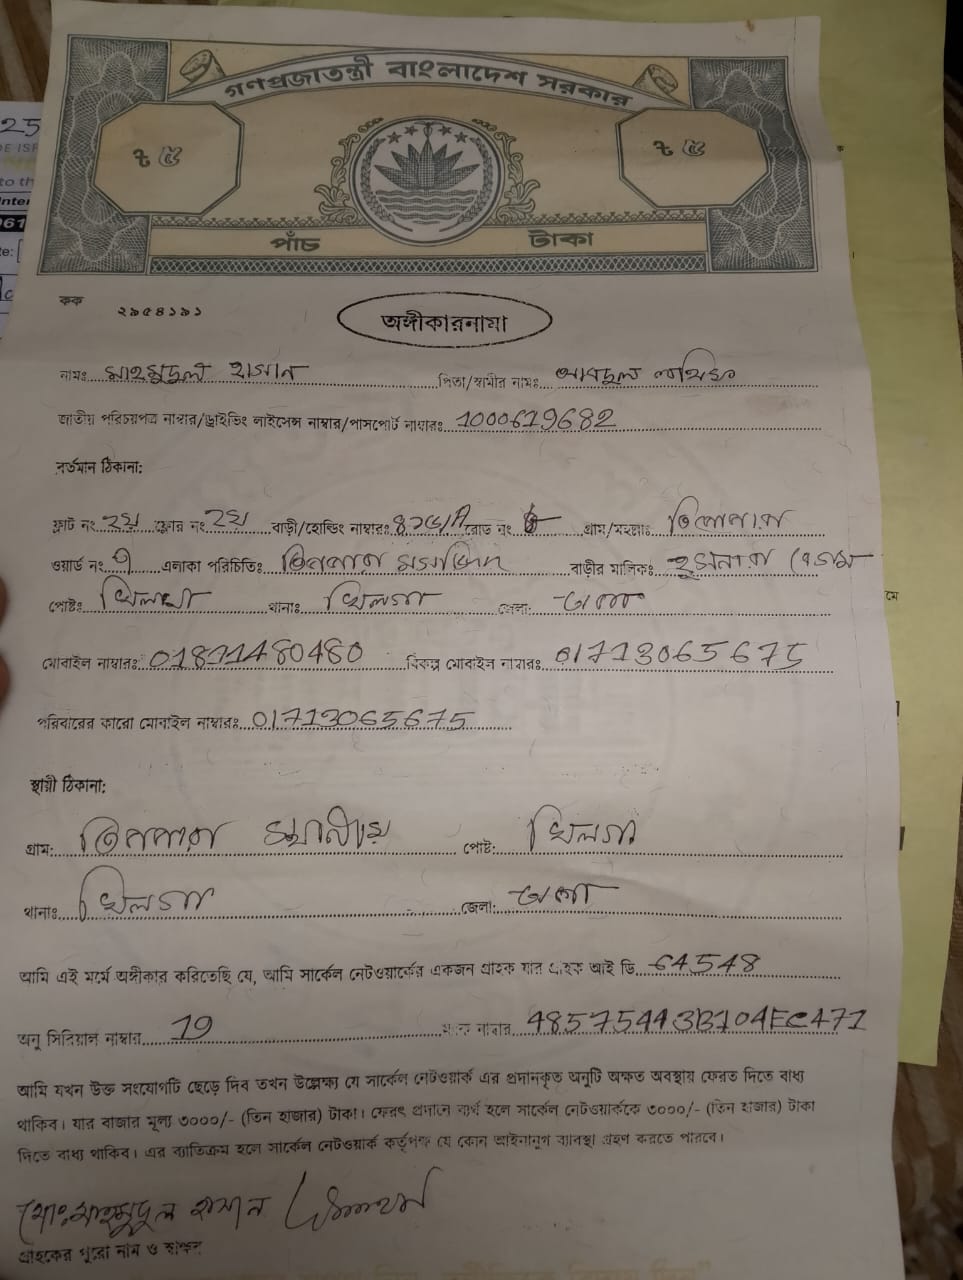 গণপ্রজাতন্ত্রী বাংলাদেশ সরকার
৳ ৫ ৳ ৫
পাঁচ টাকা
কক ২৯৫৪১৯১
অঙ্গীকারনামা
নামঃ মাহমুদুল হাসান পিতা/স্বামীর নামঃ আবদুল
জাতীয় পরিচয়পত্র নাম্বার/ড্রাইভিং লাইসেন্স নাম্বার/পাসপোর্ট নাম্বারঃ 1000619682
বর্তমান ঠিকানা:
ফ্লাট নং ২য় ফ্লোর নং ২য় বাড়ী/হোল্ডিং নাম্বারঃ রোড নং গ্রাম/মহল্লাঃ
ওয়ার্ড নং এলাকা পরিচিতিঃ মসজিদ বাড়ীর মালিকঃ
পোষ্টঃ খিলগাঁ থানাঃ খিলগাঁ জেলা: ঢাকা
মোবাইল নাম্বারঃ 01811480480 বিকল্প মোবাইল নাম্বারঃ 01713065675
পরিবারের কারো মোবাইল নাম্বারঃ 01713065675
স্থায়ী ঠিকানা:
গ্রাম: পোষ্ট: খিলগাঁ
থানাঃ খিলগাঁ জেলা: ঢাকা
আমি এই মর্মে অঙ্গীকার করিতেছি যে, আমি সার্কেল নেটওয়ার্কের একজন গ্রাহক যার গ্রাহক আই ডি 64548
অনু সিরিয়াল নাম্বার 19 নাম্বার 48575443B104EC471
আমি যখন উক্ত সংযোগটি ছেড়ে দিব তখন উল্লেক্ষ্য যে সার্কেল নেটওয়ার্ক এর প্রদানকৃত অনুটি অক্ষত অবস্থায় ফেরত দিতে বাধ্য
থাকিব। যার বাজার মূল্য ৩০০০/- (তিন হাজার) টাকা। ফেরৎ প্রদানে ব্যর্থ হলে সার্কেল নেটওয়ার্ককে ৩০০০/- (তিন হাজার) টাকা
দিতে বাধ্য থাকিব। এর ব্যতিক্রম হলে সার্কেল নেটওয়ার্ক কর্তৃপক্ষ যে কোন আইনানুগ ব্যবস্থা গ্রহণ করতে পারবে।
মোঃ মাহমুদুল হাসান
গ্রাহকের পুরো নাম ও স্বাক্ষর